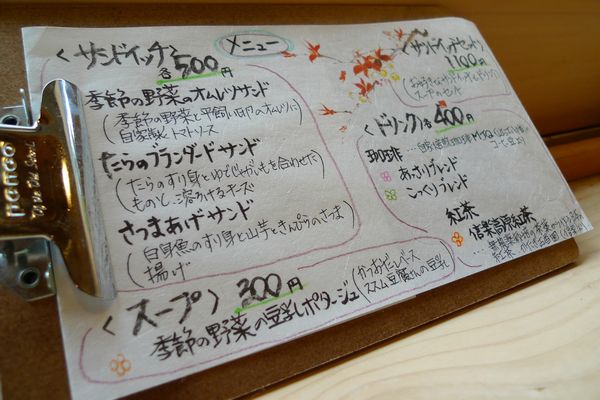 メニュー
<サンドイッチ>
各500円
季節の野菜のオムレツサンド
(季節の野菜と平飼い卵のオムレツに
自家製トマトソース
たらのブランダードサンド
(たらのすり身とゆでじゃがいもを合わせた
ものに溶かけるチーズ
さつまあげサンド
(白身魚のすり身と山芋ときんぴらのさつま
揚げ
<スープ> 300円
季節の野菜の豆乳ポタージュ
(かつおだしベース
ススム豆腐さんの豆乳)
<サンドイッチセット>
1100円
<ドリンク> 各400円
珈琲
あっさりブレンド
こっくりブレンド
紅茶
信楽高原紅茶
penco